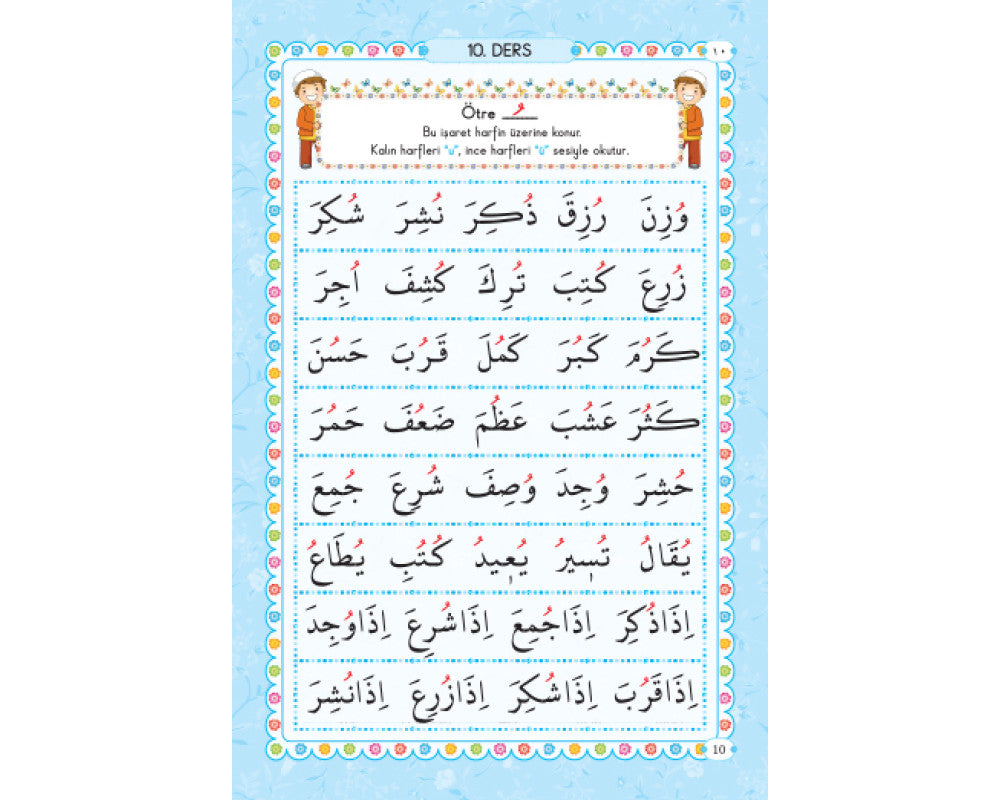 10. DERS
١٠
Ötre ـُ
Bu işaret harfin üzerine konur.
Kalın harfleri "u", ince harfleri "ü" sesiyle okutur.
وُزِنَ رُزِقَ ذُكِرَ نُشِرَ شُكِرَ
زُرِعَ كُتِبَ تُرِكَ كُشِفَ اُجِرَ
كَرُمَ كَبُرَ كَمُلَ قَرُبَ حَسُنَ
كَثُرَ عَشُبَ عَظُمَ ضَعُفَ حَمُرَ
حُشِرَ وُجِدَ وُصِفَ شُرِعَ جُمِعَ
يُقَالُ تُسٖيرُ يُعٖيدُ كُتُبِ يُطَاعُ
اِذَاذُكِرَ اِذَاجُمِعَ اِذَاشُرِعَ اِذَاوُجِدَ
اِذَاقَرُبَ اِذَاشُكِرَ اِذَازُرِعَ اِذَانُشِرَ
10